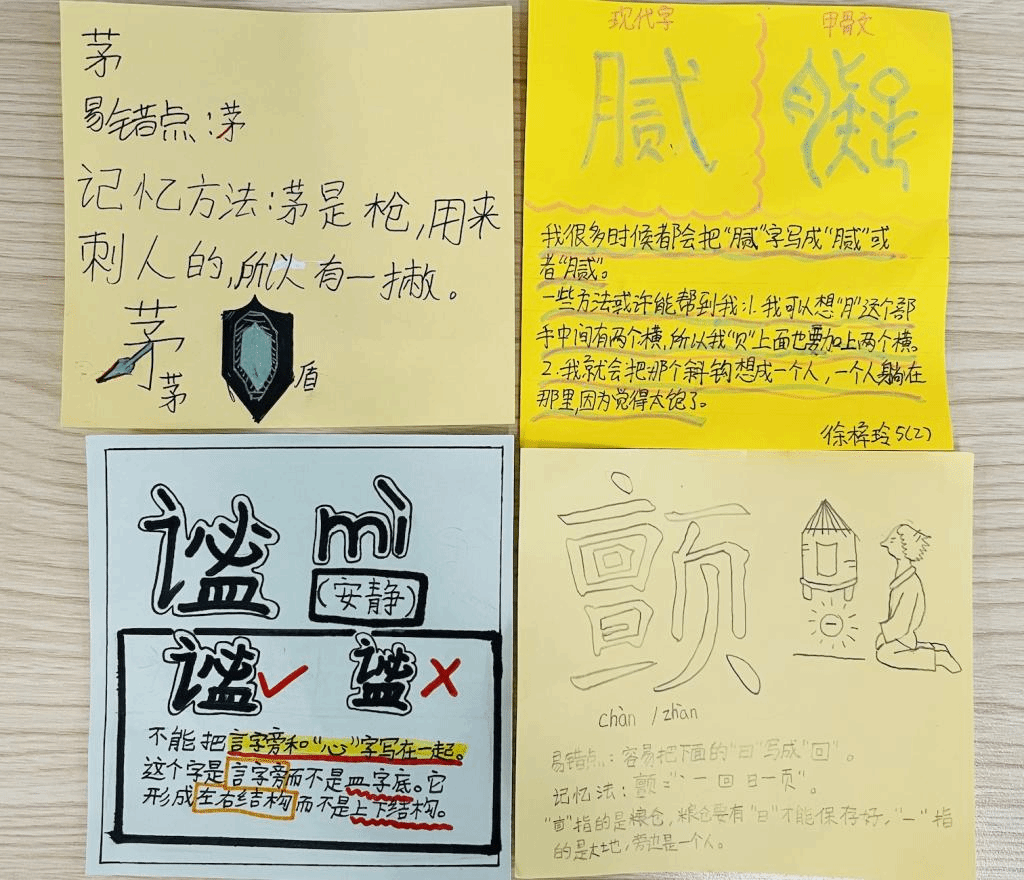 茅
易错点:茅
记忆方法:茅是枪,用来
刺人的,所以有一撇。
茅
茅
盾
现代字
甲骨文
腻
我很多时候都会把“腻”字写成“腻”或
者“腻”。
一些方法或许能帮到我:1.我可以想“月”这个部
手中间有两个横,所以我“贝”上面也要加上两个横。
2.我就会把那个斜钩想成一个人,一个人躺在
那里,因为觉得太饱了。
徐梓玲5(2)
谧 mì
(安静)
谧 谧
不能把言字旁和“心”字写在一起。
这个字是言字旁而不是皿字底。它
形成左右结构而不是上下结构。
颤
chàn /zhàn
易错点:容易把下面的“日”写成“回”。
记忆法:颤=“丶一回日一页”。
“亶”指的是粮仓,粮仓要有“日”才能保存好,“一”指
的是大地,旁边是一个人。